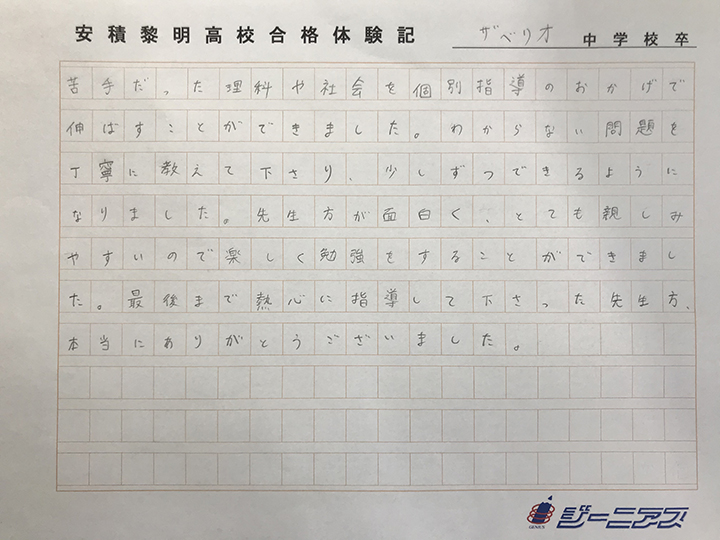 安積黎明高校合格体験記 ザベリオ 中学校卒
苦手だった理科や社会を個別指導のおかげで
伸ばすことができました。わからない問題を
丁寧に教えて下さり、少しずつできるように
なりました。先生方が面白く、とても親しみ
やすいので楽しく勉強をすることができまし
た。最後まで熱心に指導して下さった先生方、
本当にありがとうございました。
GENIUS ジーニアス